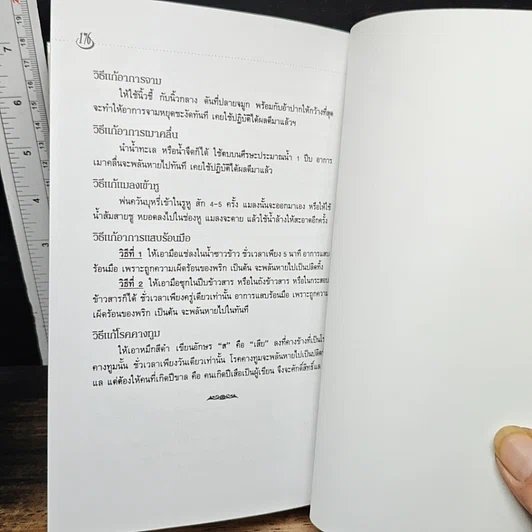 176
วิธีแก้อาการจาม
ให้ใช้นิ้วชี้ กับนิ้วกลาง ดันที่ปลายจมูก พร้อมกับอ้าปากให้กว้างที่สุด
จะทำให้อาการจามหยุดชะงัดทันที เคยใช้ปฏิบัติได้ผลดีมาแล้วฯ
วิธีแก้อาการเมาคลื่น
นำน้ำทะเล หรือน้ำจืดก็ได้ ใช้ตบบนศีรษะประมาณน้ำ 1 ปีบ อาการ
เมาคลื่นจะพลันหายไปทันที เคยใช้ปฏิบัติได้ผลดีมาแล้ว
วิธีแก้แมลงเข้าหู
พ่นควันบุหรี่เข้าในรูหู สัก 4-5 ครั้ง แมลงนั้นจะออกมาเอง หรือให้ใช้
น้ำส้มสายชู หยอดลงไปในช่องหู แมลงจะตาย แล้วใช้น้ำล้างให้สะอาดอีกครั้ง
วิธีแก้อาการแสบร้อนมือ
วิธีที่ 1 ให้เอามือแช่ลงในน้ำซาวข้าว ชั่วเวลาเพียง 5 นาที อาการแสบ
ร้อนมือ เพราะถูกความเผ็ดร้อนของพริก เป็นต้น จะพลันหายไปเป็นปลิดทิ้ง
วิธีที่ 2 ให้เอามือซุกในปีบข้าวสาร หรือในถังข้าวสาร หรือในกระสอบ
ข้าวสารก็ได้ ชั่วเวลาเพียงครู่เดียวเท่านั้น อาการแสบร้อนมือ เพราะถูกความ
เผ็ดร้อนของพริก เป็นต้น จะพลันหายไปในทันที
วิธีแก้โรคคางทูม
ให้เอาหมึกสีดำ เขียนอักษร "ส" คือ "เสือ" ลงที่คางข้างที่เป็นโร
คางทูมนั้น ชั่วเวลาเพียงวันเดียวเท่านั้น โรคคางทูมจะพลันหายไปเป็นปลิด
แล แต่ต้องให้คนที่เกิดปีขาล คือ คนเกิดปีเสือเป็นผู้เขียน จึงจะศักดิ์สิทธิ์แล